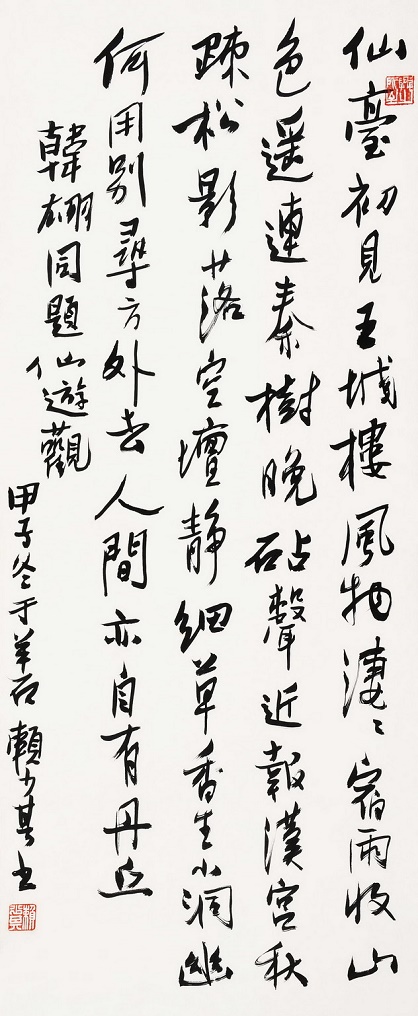 仙臺初見五城樓風物淒〻宿雨收山
色遥連秦樹晚砧聲近報漢宮秋
疎松影落空壇靜細草香生小洞幽
何用別尋方外去人間亦自有丹丘
韓翃同題仙遊觀
甲子冬于羊石賴少其书